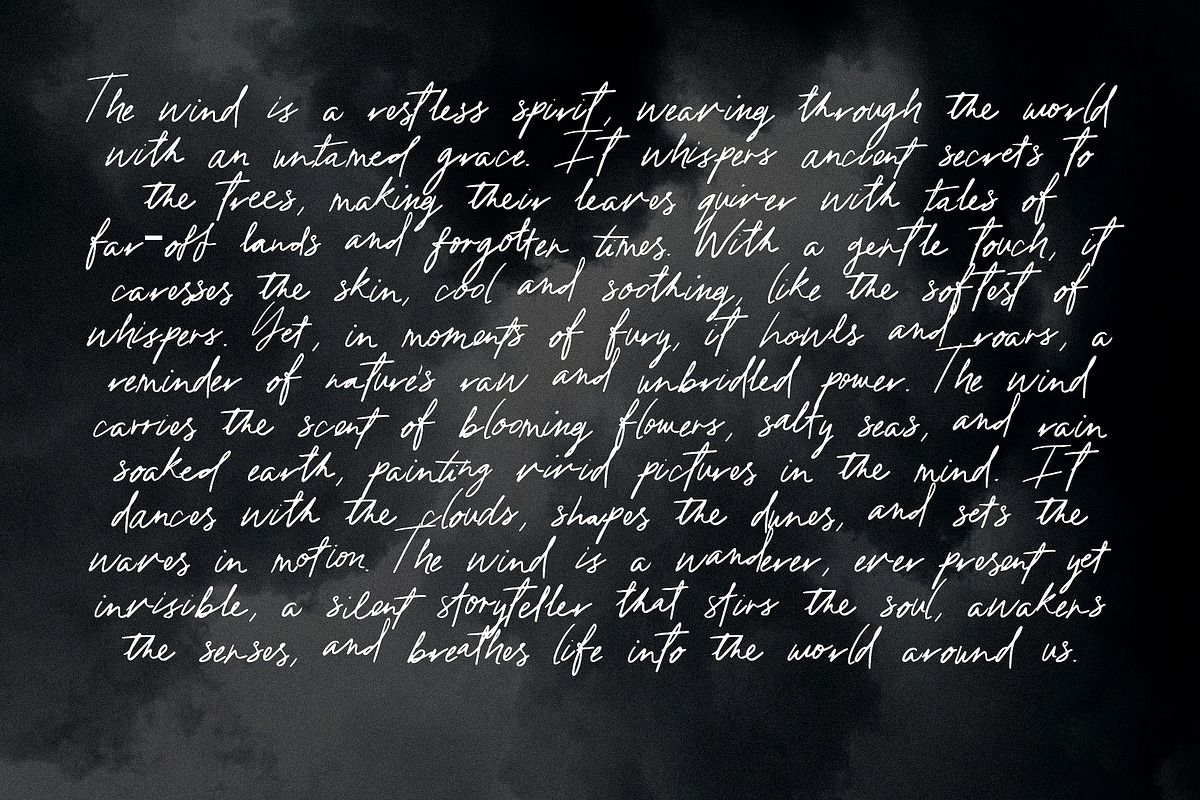 The wind is a restless spirit, weaving through the world
with an untamed grace. It whispers ancient secrets to
the trees, making their leaves quiver with tales of
far-off lands and forgotten times. With a gentle touch, it
caresses the skin, cool and soothing, like the softest of
whispers. Yet, in moments of fury, it howls and roars, a
reminder of nature's raw and unbridled power. The wind
carries the scent of blooming flowers, salty seas, and rain
soaked earth, painting vivid pictures in the mind. It
dances with the clouds, shapes the dunes, and sets the
waves in motion. The wind is a wanderer, ever present yet
invisible, a silent storyteller that stirs the soul, awakens
the senses, and breathes life into the world around us.